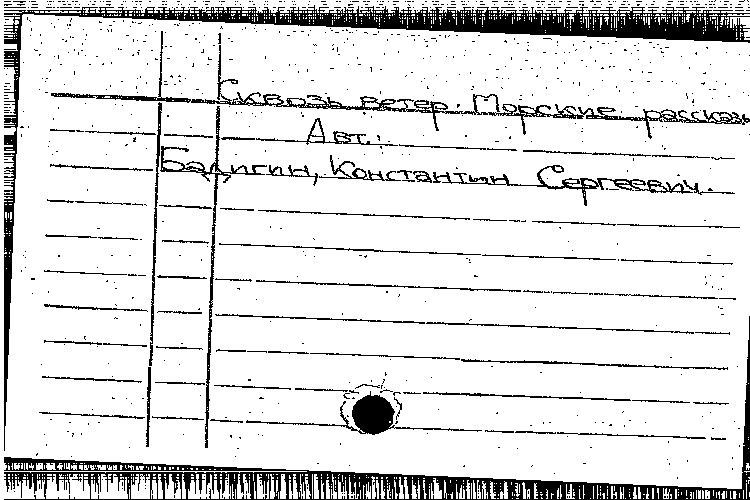 Сквозь ветер. Морские рассказы
Авт.:
Бадигин, Константин Сергеевич.